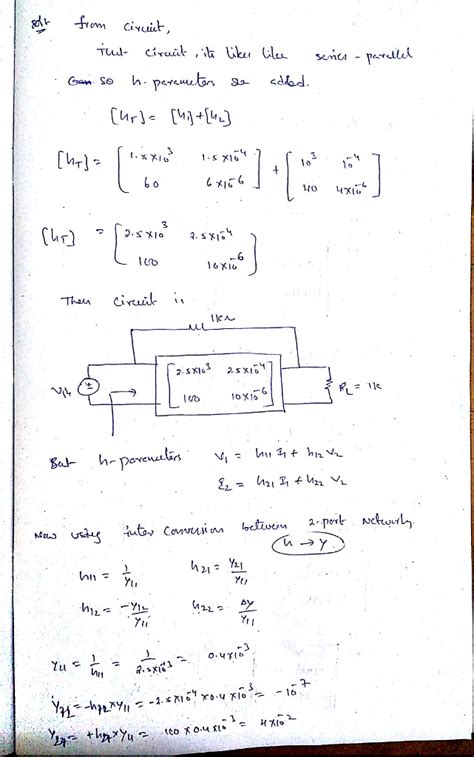 Sol:- from circuit,
that circuit, its likes like series - parallel
so h-parameters are added.
[hT] = [h1]+[h2]
[hT] = [1.5×10³ 1.5×10⁻⁴ 60 6×10⁻⁶] + [10³ 10⁻⁴ 40 4×10⁻⁶]
[hT] = [2.5×10³ 2.5×10⁻⁴ 100 10×10⁻⁶]
Then circuit is
1kΩ
[2.5×10³ 2.5×10⁻⁴ 100 10×10⁻⁶]
RL = 1k
But h-parameters V1 = h11 I1 + h12 V2
I2 = h21 I1 + h22 V2
Now using inter conversion between 2-port networks
h → y
h11 = 1/Y11 h21 = Y21/Y11
h12 = -Y12/Y11 h22 = Δy/Y11
Y11 = 1/h11 = 1/2.5×10³ = 0.4×10⁻³
= -h12×Y11 = -2.5×10⁻⁴ × 0.4×10⁻³ = -10⁻⁷
= +h21×Y11 = 100 × 0.4×10⁻³ = 4×10⁻²